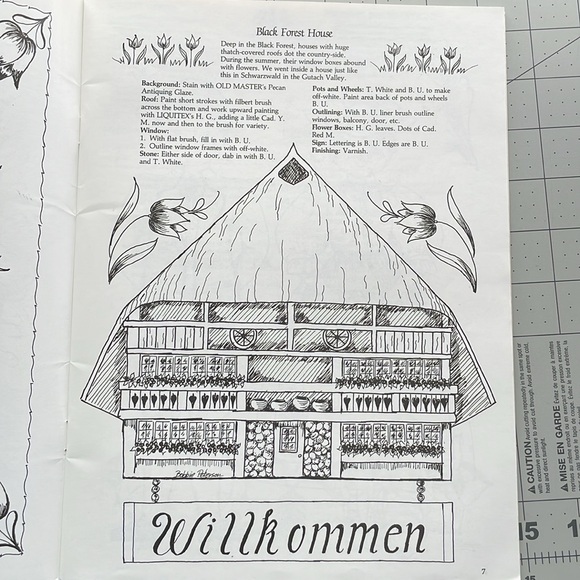 Black Forest House
Deep in the Black Forest, houses with huge
thatch-covered roofs dot the country-side.
During the summer, their window boxes abound
with flowers. We went inside a house just like
this in Schwarzwald in the Gutach Valley.
Background: Stain with OLD MASTER'S Pecan
Antiquing Glaze.
Roof: Paint short strokes with filbert brush
across the bottom and work upward painting
with LIQUITEX'S H. G., adding a little Cad. Y.
M. now and then to the brush for variety.
Window:
1. With flat brush, fill in with B. U.
2. Outline window frames with off-white.
Stone: Either side of door, dab in with B. U.
and T. White.
Pots and Wheels: T. White and B. U. to make
off-white. Paint area back of pots and wheels
B. U.
Outlining: With B. U. liner brush outline
windows, balcony, door, etc.
Flower Boxes: H. G. leaves. Dots of Cad.
Red M.
Sign: Lettering is B. U. Edges are B. U.
Finishing: Varnish.
Willkommen
7
CAUTION Avoid cutting repeatedly in the same spot or
with excessive pressure to avoid cut through. Avoid extreme cold,
heat and direct sunlight.
MISE EN GARDE Évitez de couper à maintes
15
15